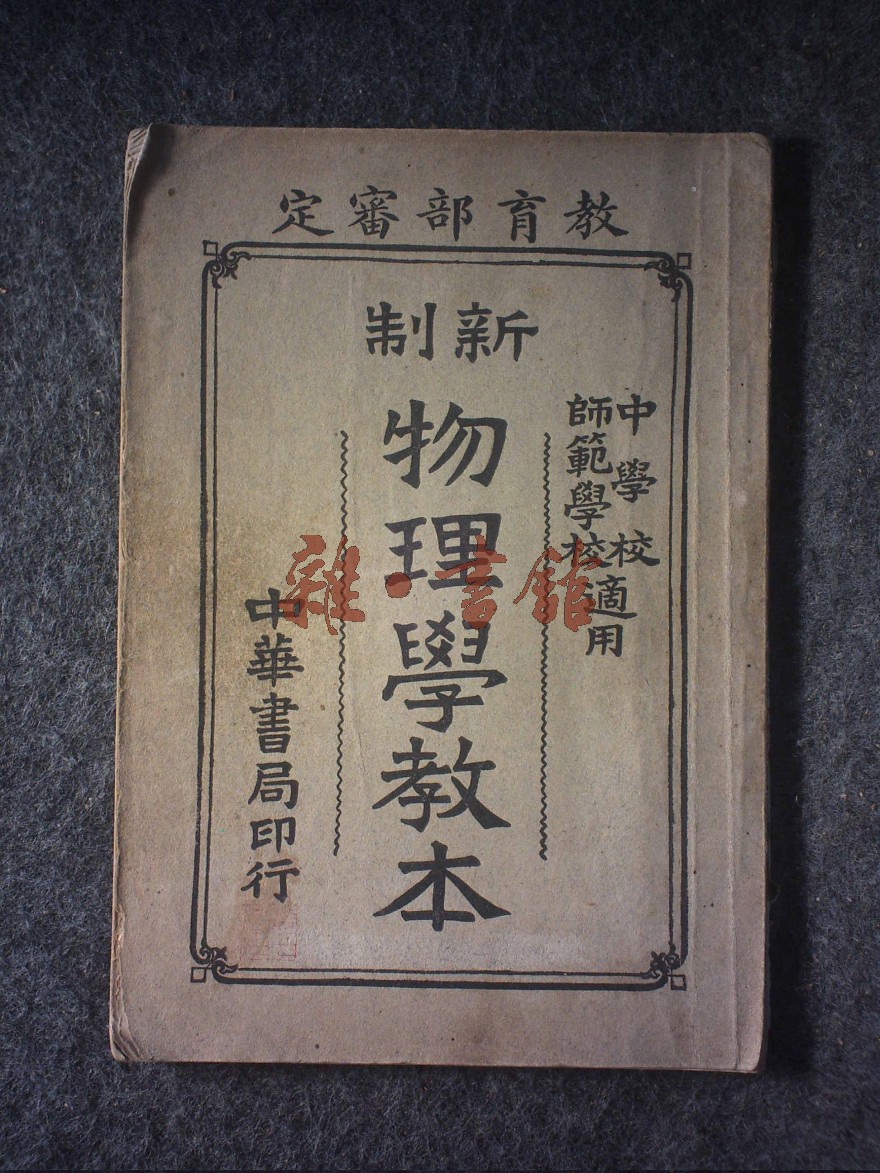 教育部審定
中學校
師範學校適用
新制
物理學教本
中華書局印行
雜·書館